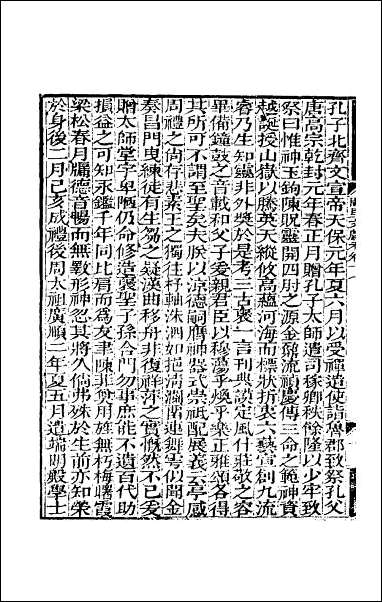 孔子北齊文宣帝天保元年夏六月以受禪遣使詣魯郡致祭孔父
唐高宗乾封元年春正月贈孔子太師遣司稼卿扶餘隆以少牢致
祭曰惟神玉鉤陳貺靈開四肘之源金鏡流禎慶傳三命之範神資
越誕授山嶽以騰英天縱攸高蘊河海而標狀折衷六藝宣創九流
睿乃生知靈非外獎於是考三古褒一言刊典謨定風什莊敬之容
畢備鐘鼓之音載和父子愛親君臣以穆蕩乎煥乎樂正雅頌各得
其所可不謂至聖矣夫朕以涼德嗣膺神器式崇祇配展義云亭感
周禮之尚存悲素王之獨往杼軸洙泗如挹清瀾留連舞雩似聞金
奏昌門曳練徒有生芻之疑漢曲移舟非復祥萍之實慨然不已爰
贈太師堂宇卑陋仍命修造褒聖子孫合門勿事庶能不遺百代助
損益之可知永鑑千年同比肩而爲友聿陳菲奠用旌無朽梅曙霞
梁松春月牖德音暢而無斁形神忽其將久倘弗殊於生前亦知榮
於身後二月己亥成禮後周太祖廣順二年夏五月遣端明殿學士